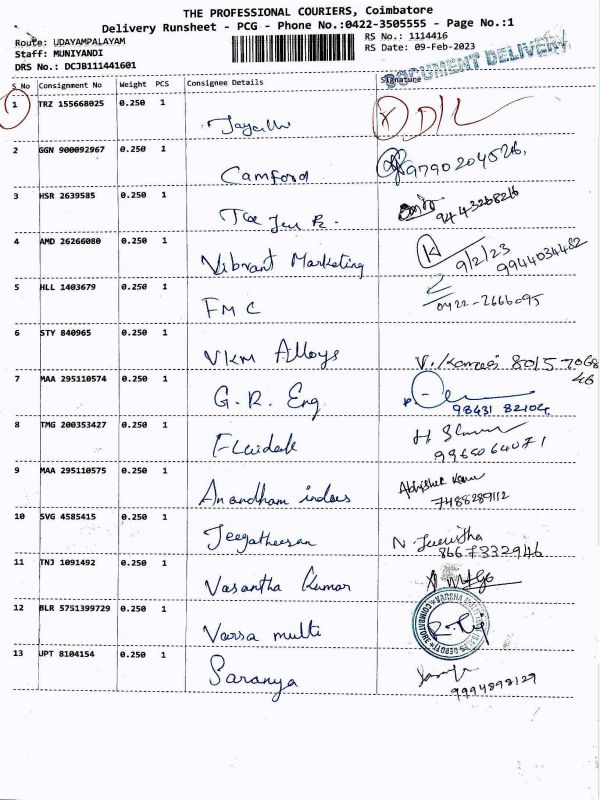 THE PROFESSIONAL COURIERS, Coimbatore
Delivery Runsheet - PCG - Phone No.:0422-3505555 - Page No.:1
Route: UDAYAMPALAYAM
RS No.: 1114416
Staff: MUNIYANDI
RS Date: 09-Feb-2023
DRS No.: DCJB111441601
DOCUMENT DELIVERY
S No Consignment No Weight PCS Consignee Details Signature
1 TRZ 155668025 0.250 1 D/L
2 GGN 900092967 0.250 1 Camford
3 HSR 2639585 0.250 1 9443268216
4 AMD 26266080 0.250 1 Vibrant Marketing 9/2/23 9944034482
5 HLL 1403679 0.250 1 FMC 0422-2666095
6 STY 840965 0.250 1 VKM Alloys 8015 7068 46
7 MAA 295110574 0.250 1 G.R. Eng 98431 82104
8 TMG 200353427 0.250 1 9965064071
9 MAA 295110575 0.250 1 Anandham 7488289112
10 SVG 4585415 0.250 1 Jeegatheesan 8667332946
11 TNJ 1091492 0.250 1 Vasantha Kumar
12 BLR 5751399729 0.250 1 Varsa multi
13 JPT 8104154 0.250 1 Saranya 9994898129